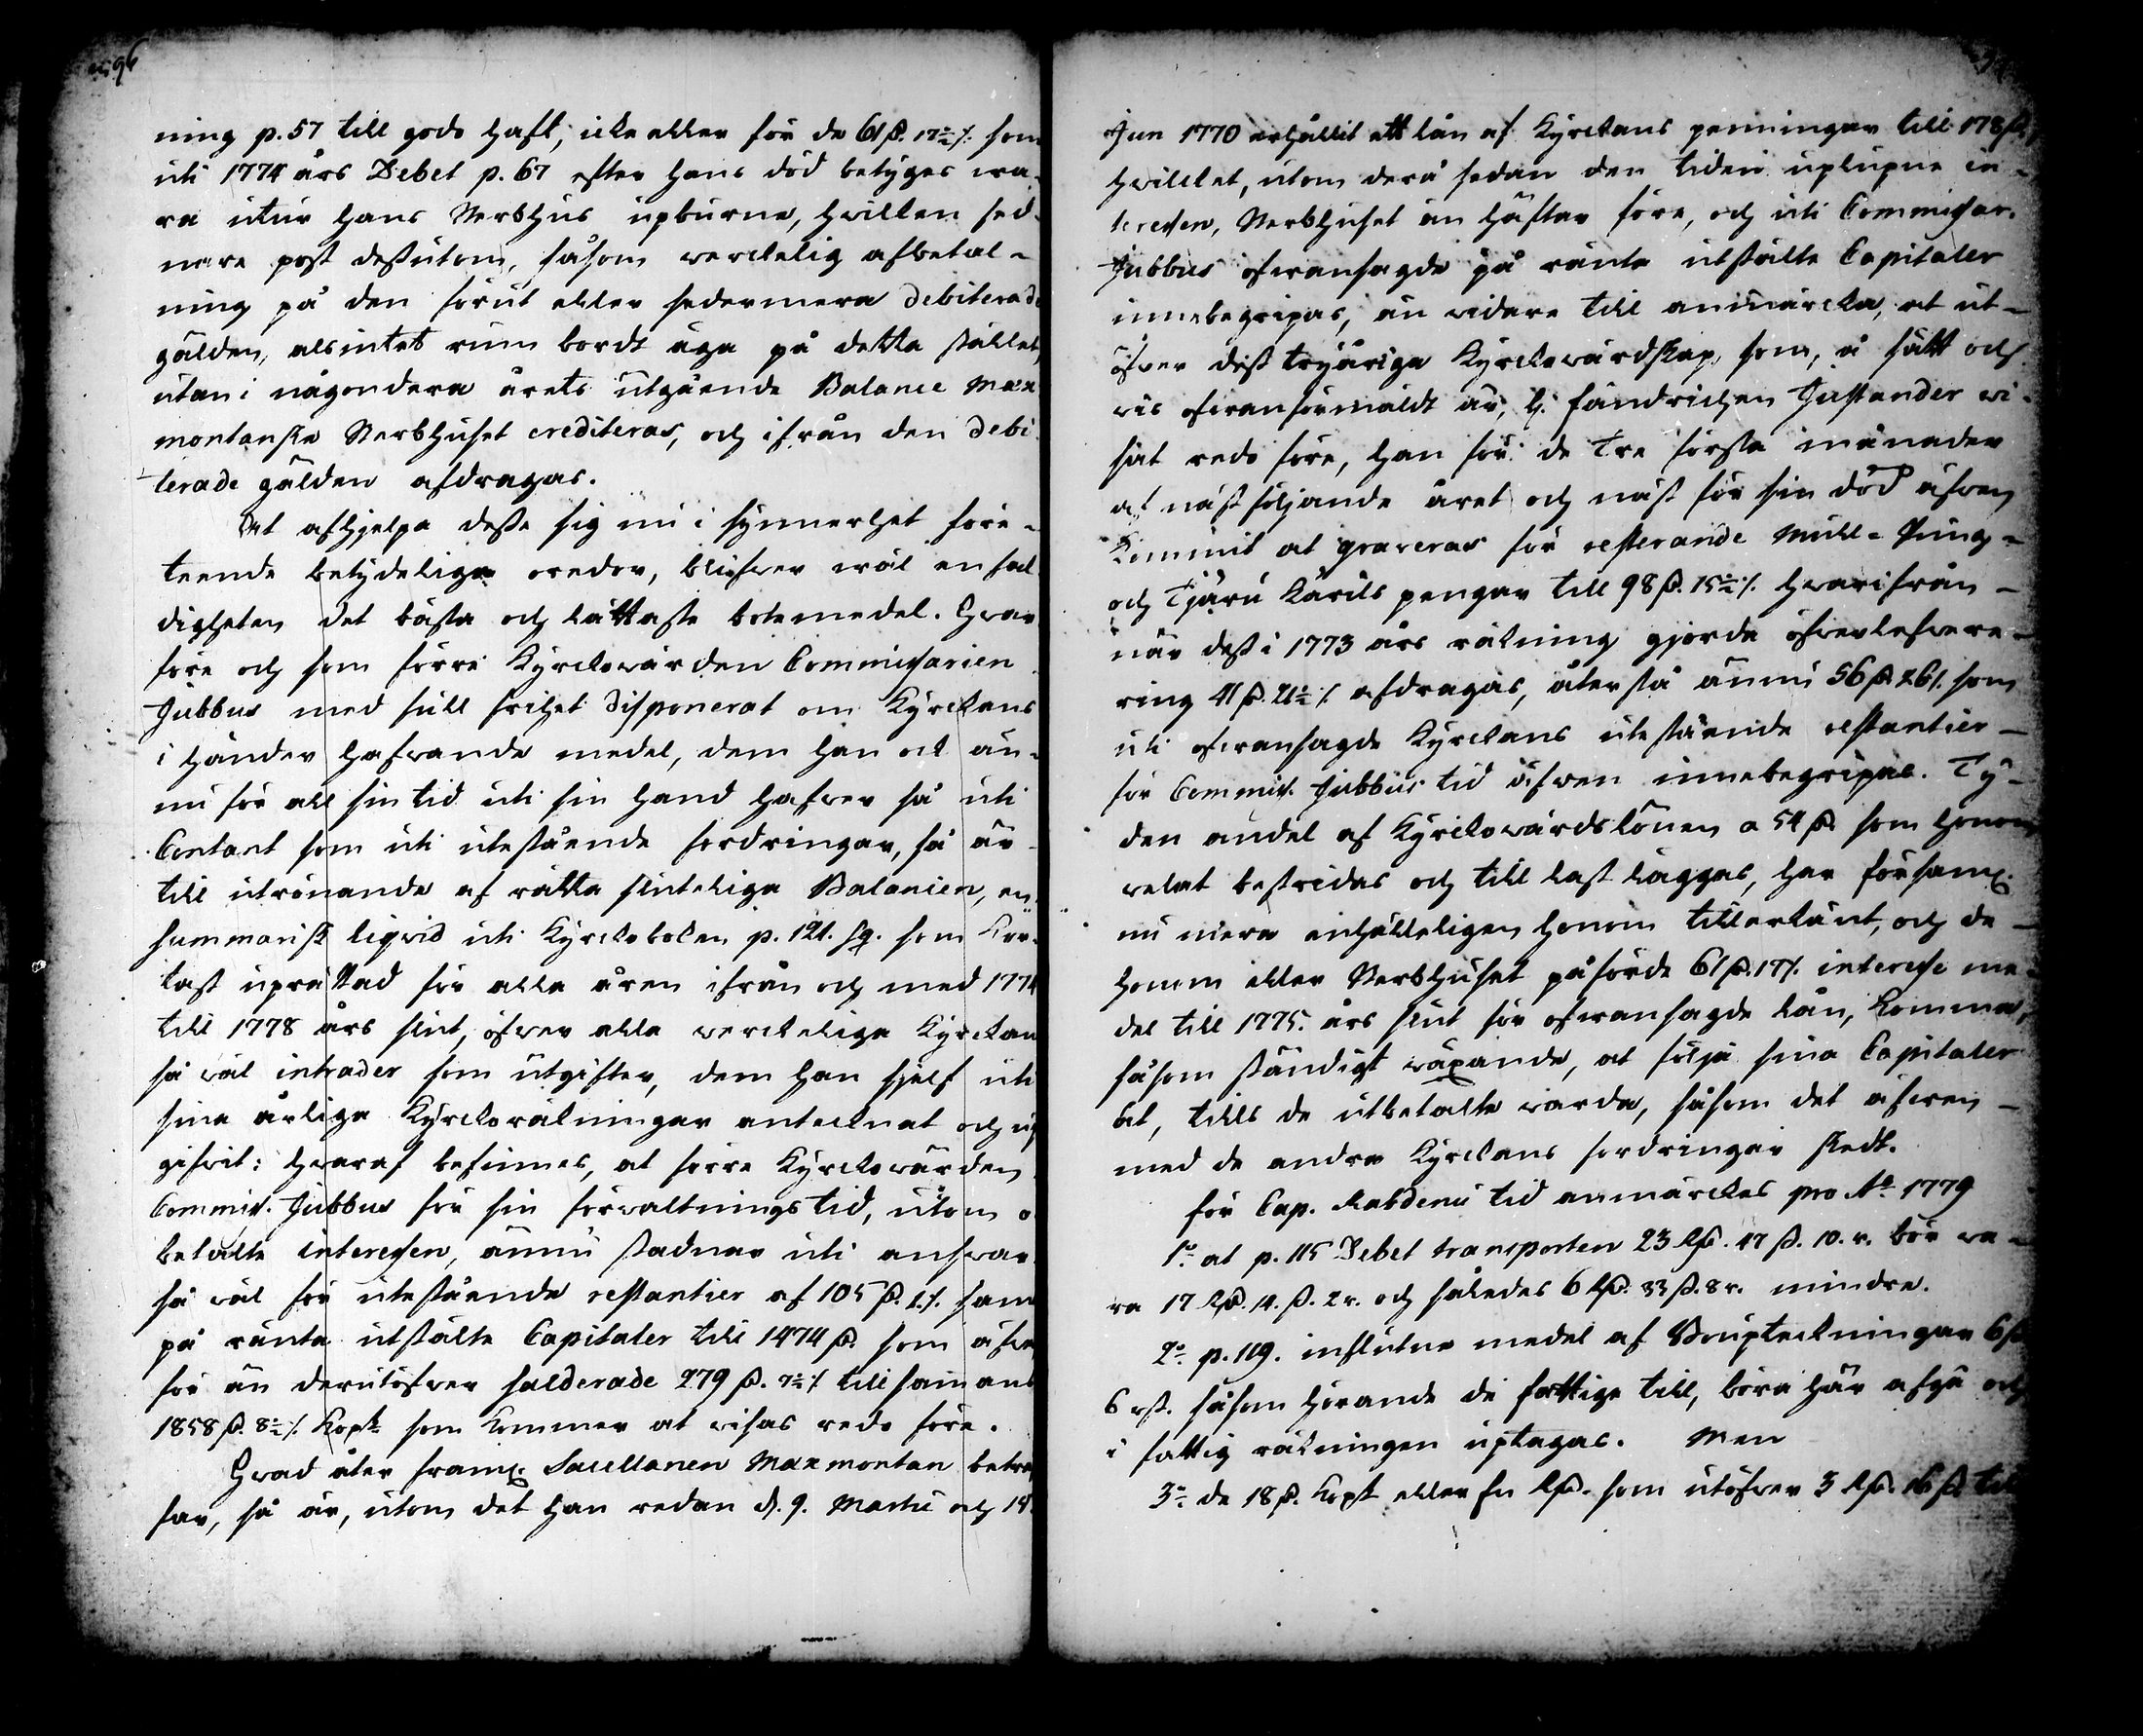 ning p. 57 till godo haft, icke eller för de 61 ß. 17½ /. som
uti 1774 års Debet p. 67 efter hans död betyges wa-
ra utur hans Sterbhus upburne, hwilken sed-
nare post dessutom, såsom werckelig afbetal-
ning på den förut eller sedermera debiterade
gälden, alsintet rum bordt äga på detta stället,
utan i någondera årets utgående Balance Max-
montanska Sterbhuset crediteras, och ifrån den debi-
terade gälden afdragas.
At afhjelpa desse sig nu i synnerhet före-
teende betydeliga oredor, blifwer wäl enfal-
digheten det bästa och lättaste botemedel. Hwar-
före och som förre Kyrckowärden Commissarien
Jubbus med full frihet disponerat om Kyrckans
i händer hafwande medel, dem han ock än-
nu för all sin tid uti sin hand hafwer så uti
Contant som uti utestående fordringar, så är
till utrönande af rätta sluteliga Balancen, en
summarisk liqvid uti Kyrckoboken p. 121. sq. som kor-
tast uprättad för alla åren ifrån och med 1774
till 1778 års slut, öfwer alla werckeliga Kyrckans
så wäl intrader som utgifter, dem han sjelf uti
sina årliga Kyrckoräkningar antecknat och up-
gifwit: hwaraf befinnes, at förre Kyrckowärden
Commiss. Jubbus för sin förwaltningstid, utom o-
betalte interessen, ännu stadnar uti answar
så wäl för utestående restantier af 105 ß. 1 /. som
på ränta utstälte Capitaler till 1474 ß. som äfwen
för än derutöfwer salderade 279 ß. 7½ /. tillsammans
1858 ß. 8½ /. Kopt. som kommer at wisas redo före.
Hwad åter framl. Sacellanen Maxmontan beträf-
far, så är, utom det han redan d. 9. Martii och 14
Jun 1770 erhållit ett lån af Kyrckans penningar till 178 ß.
hwilcket, utom derå sedan den tiden uplupne in-
teressen, Sterbhuset än häftar före, och uti Commissar.
Jubbus ofwansagde på ränta utstälte Capitaler
innebegripas, än widare till anmärcka, at ut-
öfwer dess treåriga Kyrckowärdskap, som, å sätt och
wis ofwanförmäldt är, h. Fändrichen Justander wi-
sat redo före, han för de tre första månader
af nästföljande året och näst för sin död äfwen
kommit at graveras för resterande Mull- Pung-
och Tjäru Kärils pengar till 98 ß. 15½ /. hwarifrån
när dess i 1773 års räkning gjorde öfwerlefwere-
ring 41 ß. 21½ /. afdragas, återstå ännu 56 ß. 26 /. som
uti ofwansagde Kyrckans utestående restantier
för Commiss. Jubbus tid äfwen innebegripas. Ty
den andel af Kyrckowärdslönen a 54 ß. som honom
welat bestridas och till last läggas, har församl.
nu mera enhälleligen honom tillerkänt, och de
honom eller Sterbhuset påförde 61 ß. 17 /. interesse me-
del till 1775. års slut för ofwansagde lån, komma,
såsom ständigt wäxande, at följa sina Capitaler
åt, tills de utbetalte warda, såsom det äfwen
med de andra Kyrckans fordringar skedt.
För Cap. Rabdenii tid anmärckes pro Ao. 1779
1o. at p. 115 Debet transporten 23 Rß. 47 ß. 10. r. bör wa-
ra 17 Rß. 14. ß. 2 r. och således 6 Rß. 33 ß. 8 r. mindre.
2o. p. 119. influtne medel af Bouptekningar 6 ß.
6 rß. såsom hörande de fattige till, böra här afgå och
i fattig räkningen uptagas. Men
3o. de 18 ß. Kopt eller en Rß. som utöfwer 3 Rß. 16 ß. till